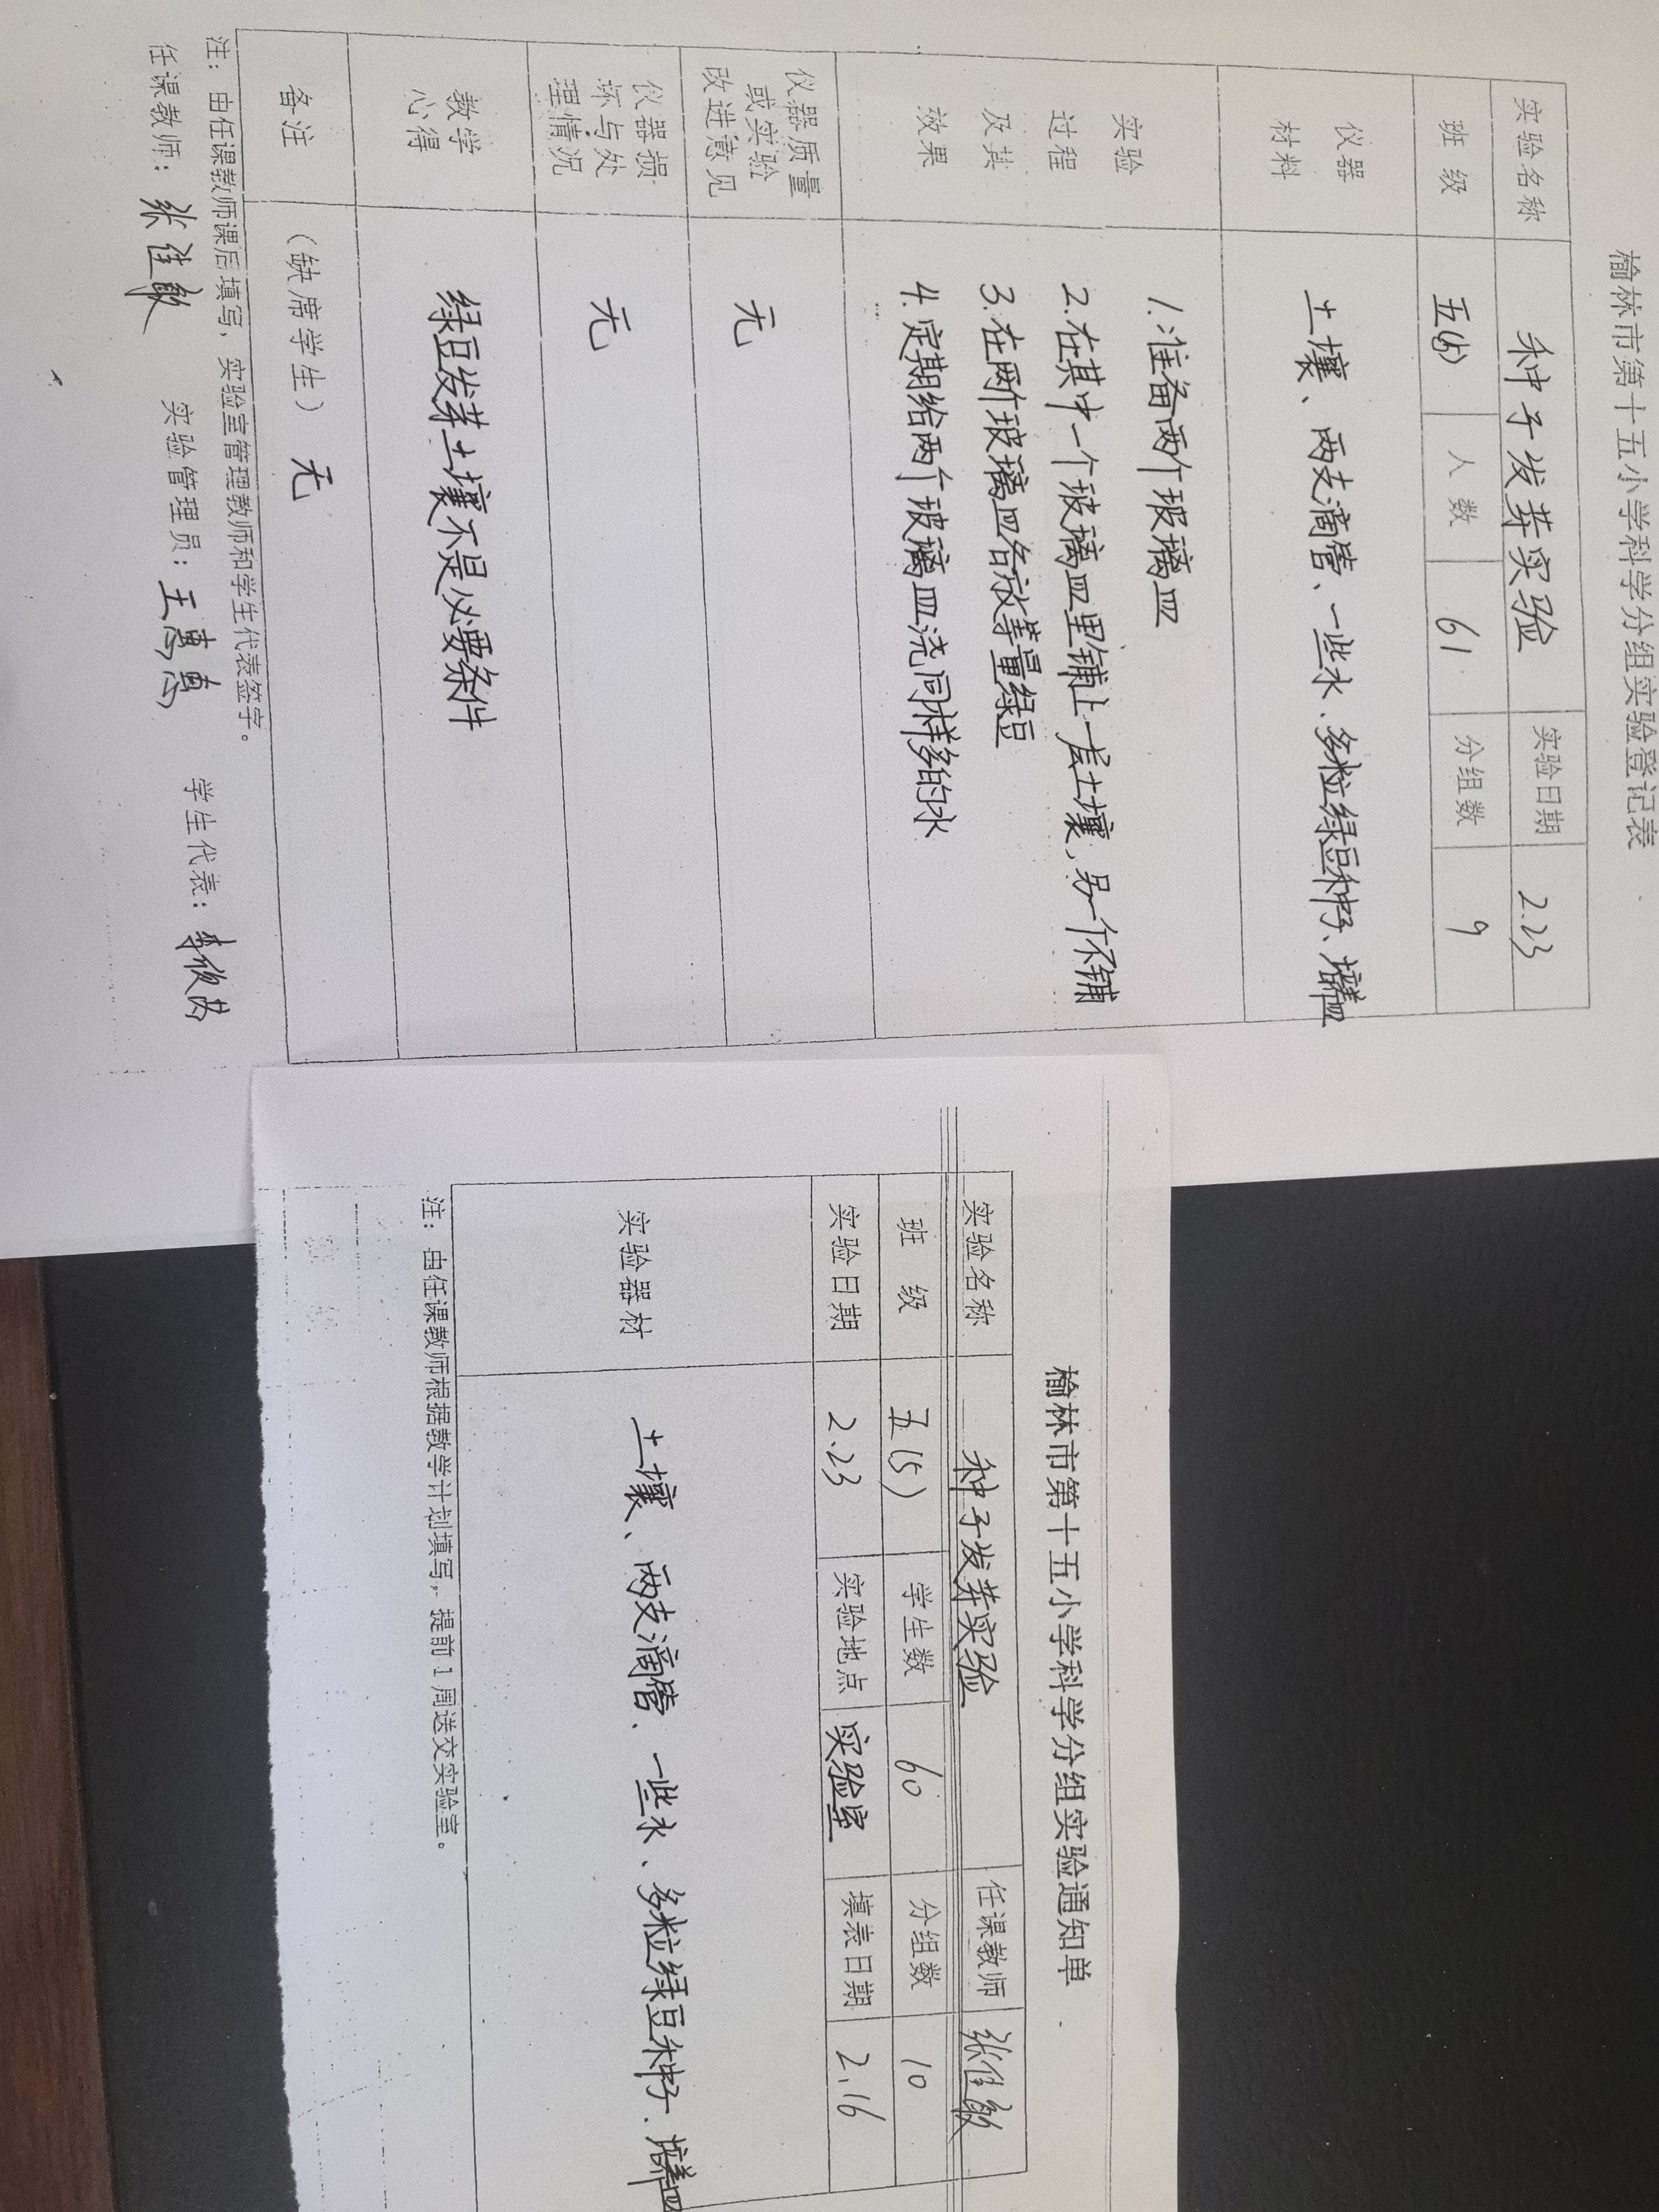 榆林市第十五小学科学分组实验登记表
实验名称 种子发芽实验 实验日期 2.23
班级 人数 61 分组数 9
仪器
材料
土壤、两支滴管、一些水、多粒绿豆种子、培养皿
实验
过程
及其
效果
1.准备两个玻璃皿
2.在其中一个玻璃皿里铺上一层土壤,另一个不铺
3.在两个玻璃皿各放等量绿豆
4.定期给两个玻璃皿浇同样多的水
仪器质量
或实验
改进意见
无
仪器损
坏与处
理情况
无
教学
心得
绿豆发芽土壤不是必要条件
备注 (缺席学生) 无
注:由任课教师课后填写,实验室管理教师和学生代表签字。
任课教师:张佳敏 实验管理员:王惠惠 学生代表:
榆林市第十五小学科学分组实验通知单
实验名称 种子发芽实验 任课教师 张佳敏
班级 五(5) 学生数 60 分组数 10
实验日期 2.23 实验地点 实验室 填表日期 2.16
实验器材 土壤、两支滴管、一些水、多粒绿豆种子、培养皿
注:由任课教师根据教学计划填写,提前1周送交实验室。